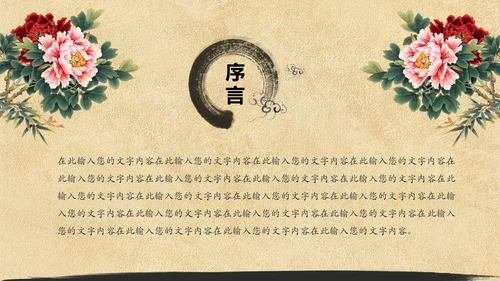 序
言
在此输入您的文字内容在此输入您的文字内容在此输入您的文字内容在此输入您的文字内容在
此输入您的文字内容在此输入您的文字内容在此输入您的文字内容在此输入您的文字内容在此
输入您的文字内容在此输入您的文字内容在此输入您的文字内容在此输入您的文字内容在此输
入您的文字内容在此输入您的文字内容在此输入您的文字内容在此输入您的文字内容在此输入
您的文字内容在此输入您的文字内容在此输入您的文字内容在此输入您的文字内容。